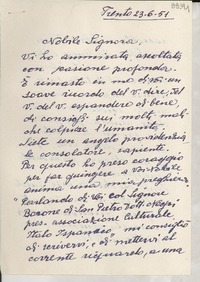 Trento 23.6.51
Nobile Signora,
Vi ho ammirata, ascoltata
con passione profonda.
È rimasto in me di voi un
soave ricordo del v. dire, del
v. espandere di bene,
di consigli sui molti mali
che colpisce l'umanità.
Siete un angelo provvidenziale
consolatore, sapiente.
Per questo ho preso coraggio
per far giungere a Voi
anima una mia preghiera.
Parlando di Voi col Signore
Barone di San Pietro
pres. associazione Culturale
Italo Espanica, mi consigliò
di scrivervi, e di mettervi al
corrente riguardo, a una